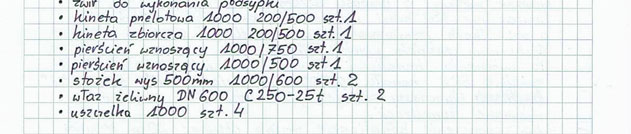 • żwir do wykonania podsypki
• kineta przelotowa 1000 200/500 szt. 1
• kineta zbiorcza 1000 200/500 szt. 1
• pierścień wznoszący 1000/750 szt. 1
• pierścień wznoszący 1000/500 szt 1
• stożek wys 500mm 1000/600 szt. 2
• właz żeliwny DN 600 C250-25t szt. 2
• uszczelka 1000 szt. 4